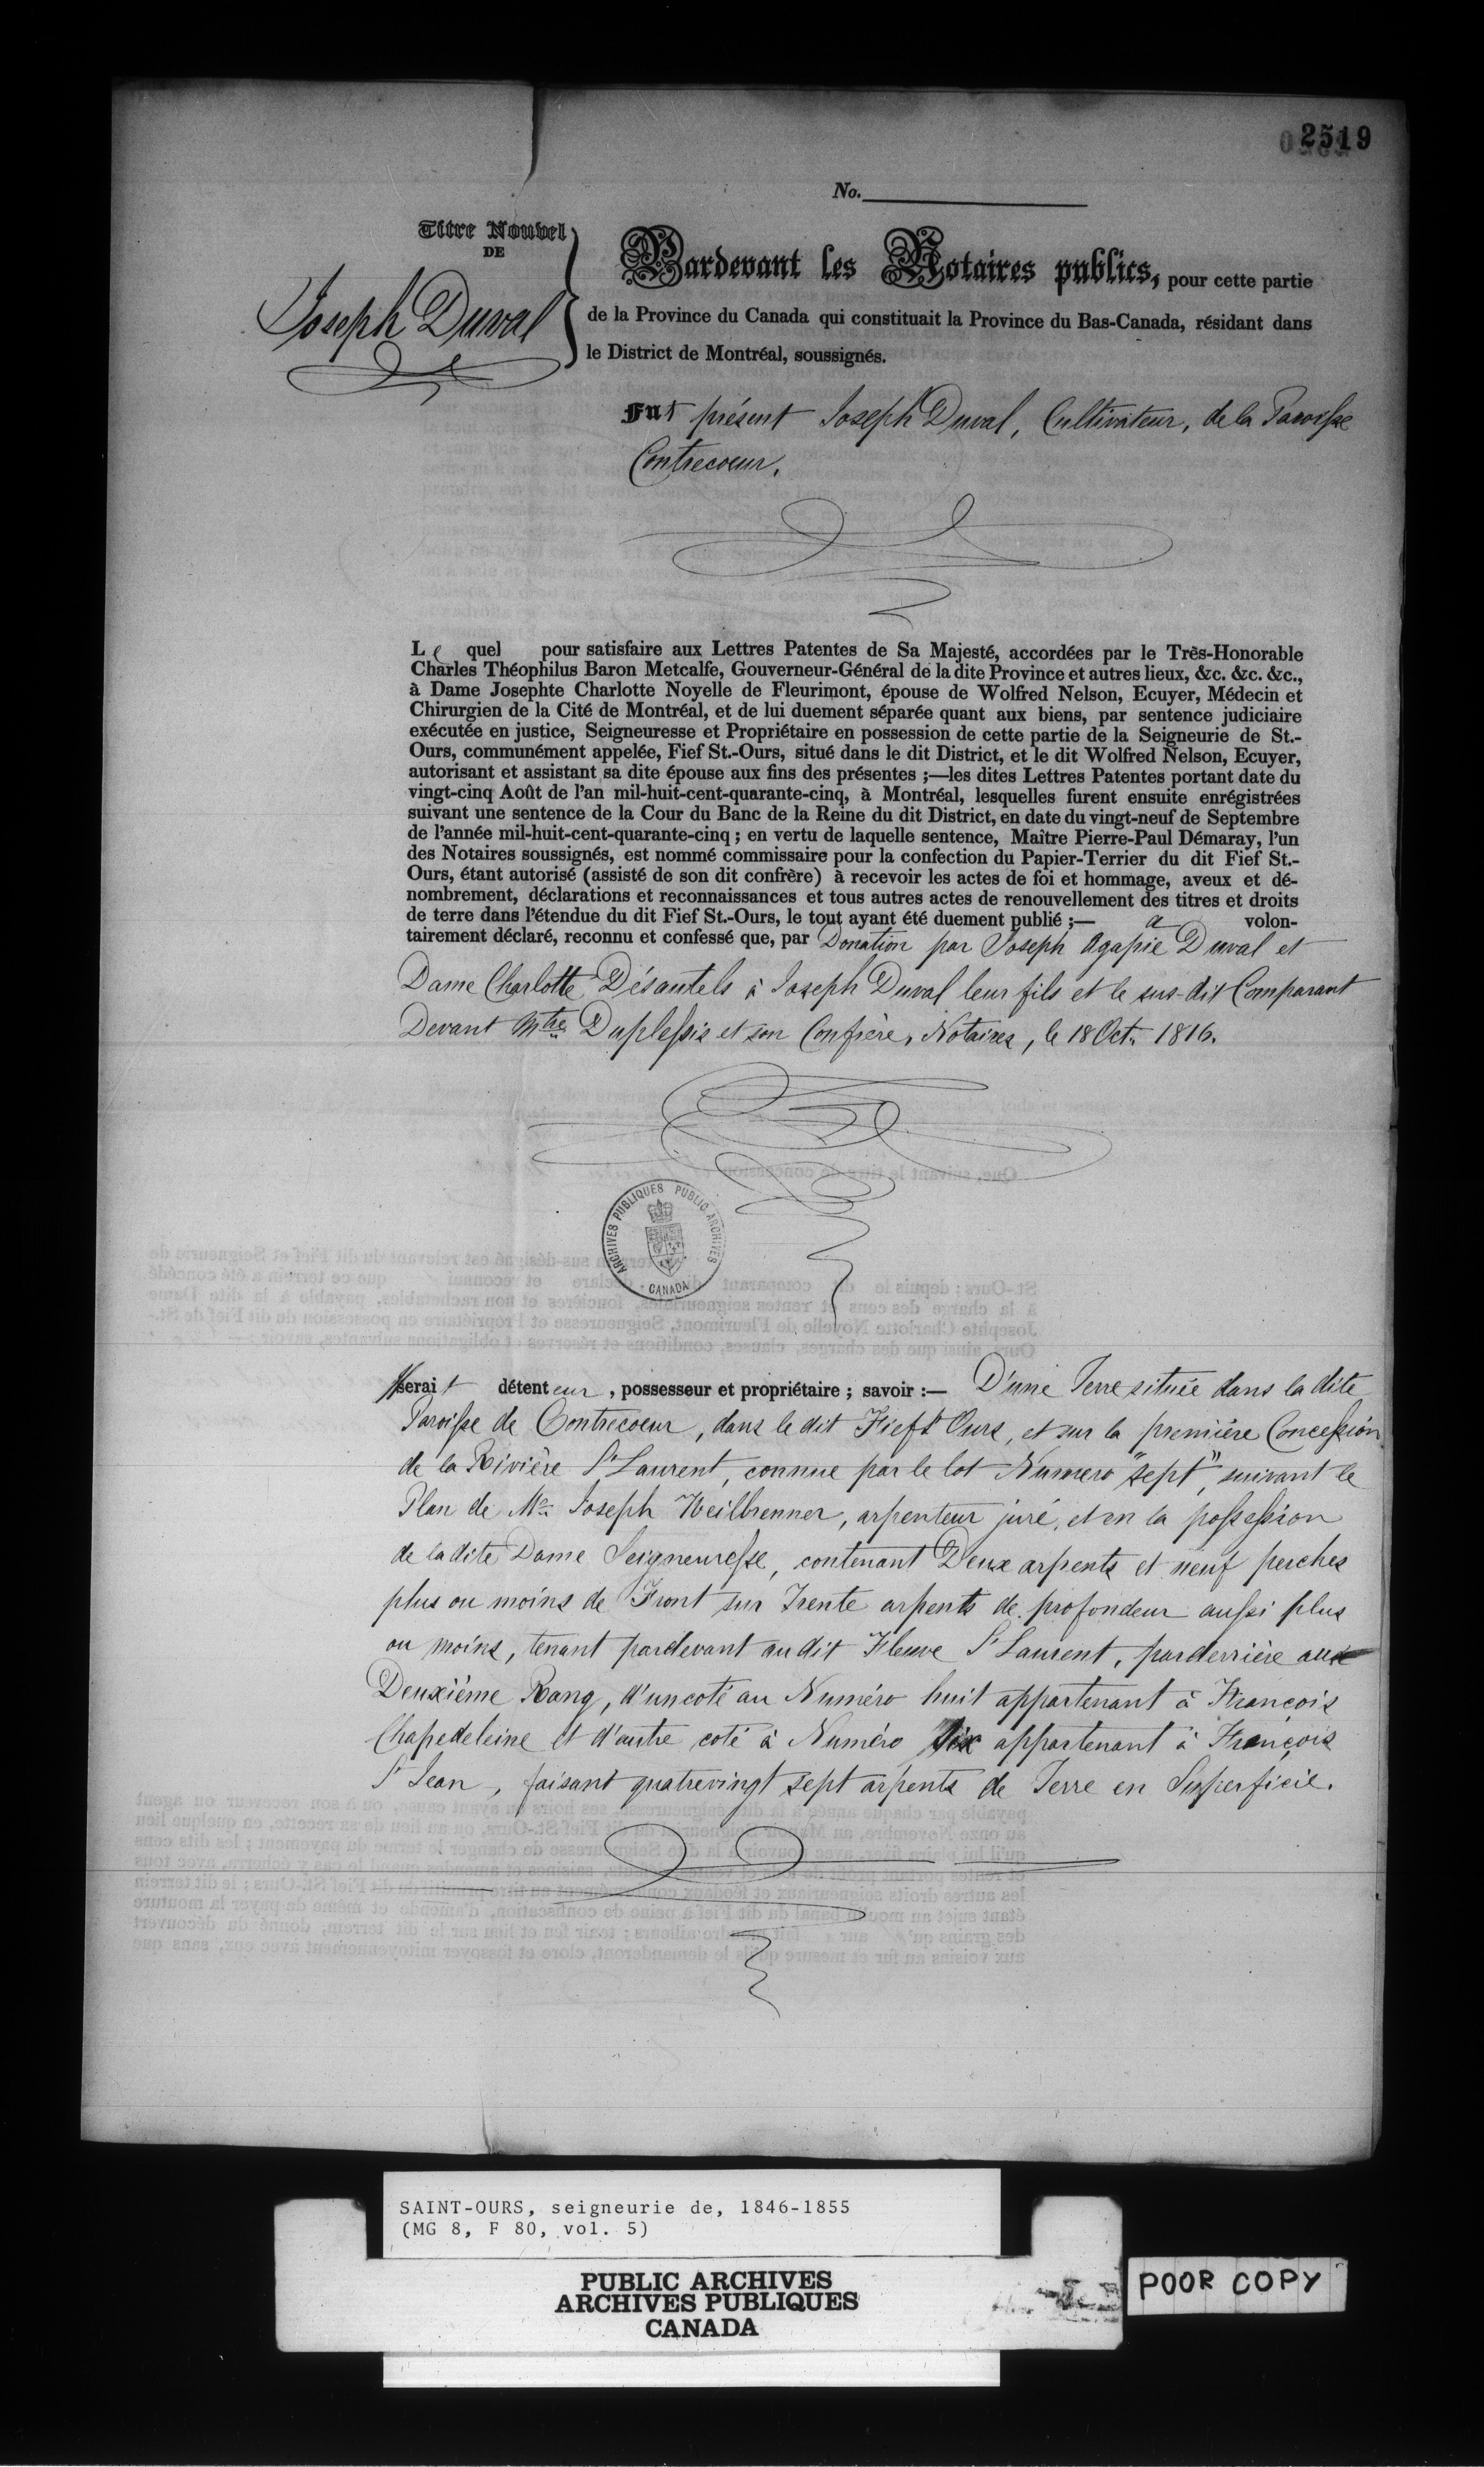 2519
No.
Titre Nouvel
DE
Joseph Duval
Pardevant les Notaires publics, pour cette partie
de la Province du Canada qui constituait la Province du Bas-Canada, résidant dans
le District de Montréal, soussignés.
Fut présent Joseph Duval, Cultivateur, de la Paroisse
Contrecoeur.
Le quel pour satisfaire aux Lettres Patentes de Sa Majesté, accordées par le Très-Honorable
Charles Théophilus Baron Metcalfe, Gouverneur-Général de la dite Province et autres lieux, &c. &c. &c.,
à Dame Josephte Charlotte Noyelle de Fleurimont, épouse de Wolfred Nelson, Ecuyer, Médecin et
Chirurgien de la Cité de Montréal, et de lui duement séparée quant aux biens, par sentence judiciaire
exécutée en justice, Seigneuresse et Propriétaire en possession de cette partie de la Seigneurie de St.-
Ours, communément appelée, Fief St.-Ours, situé dans le dit District, et le dit Wolfred Nelson, Ecuyer,
autorisant et assistant sa dite épouse aux fins des présentes ;—les dites Lettres Patentes portant date du
vingt-cinq Août de l'an mil-huit-cent-quarante-cinq, à Montréal, lesquelles furent ensuite enrégistrées
suivant une sentence de la Cour du Banc de la Reine du dit District, en date du vingt-neuf de Septembre
de l'année mil-huit-cent-quarante-cinq ; en vertu de laquelle sentence, Maître Pierre-Paul Démaray, l'un
des Notaires soussignés, est nommé commissaire pour la confection du Papier-Terrier du dit Fief St.-
Ours, étant autorisé (assisté de son dit confrère) à recevoir les actes de foi et hommage, aveux et dé-
nombrement, déclarations et reconnaissances et tous autres actes de renouvellement des titres et droits
de terre dans l'étendue du dit Fief St.-Ours, le tout ayant été duement publié ;— a volon-
tairement déclaré, reconnu et confessé que, par Donation par Joseph Agapie Duval et
Dame Charlotte Désautels à Joseph Duval leur fils et le sus-dit Comparant
Devant Mtre Duplessis et son Confrère, Notaires, le 18 Oct. 1816.
ARCHIVES PUBLIQUES PUBLIC ARCHIVES
CANADA
serait détenteur, possesseur et propriétaire ; savoir :— D'une Terre située dans la dite
Paroisse de Contrecoeur, dans le dit Fief St Ours, et sur la première Concession
de la Rivière St Laurent, connue par le lot Numero "sept", suivant le
Plan de Mr. Joseph Weilbrenner, arpenteur juré, et en la possession
de la dite Dame Seigneuresse, contenant Deux arpents et neuf perches
plus ou moins de Front sur Trente arpents de profondeur aussi plus
ou moins, tenant pardevant au dit Fleuve St Laurent, parderrière aux
Deuxième Rang, d'un coté au Numéro huit appartenant à François
Chapedeleine et d'autre coté à Numéro six appartenant à François
St Jean, faisant quatrevingt sept arpents de Terre en Superficie.
SAINT-OURS, seigneurie de, 1846-1855
(MG 8, F 80, vol. 5)
PUBLIC ARCHIVES
ARCHIVES PUBLIQUES
CANADA
POOR COPY